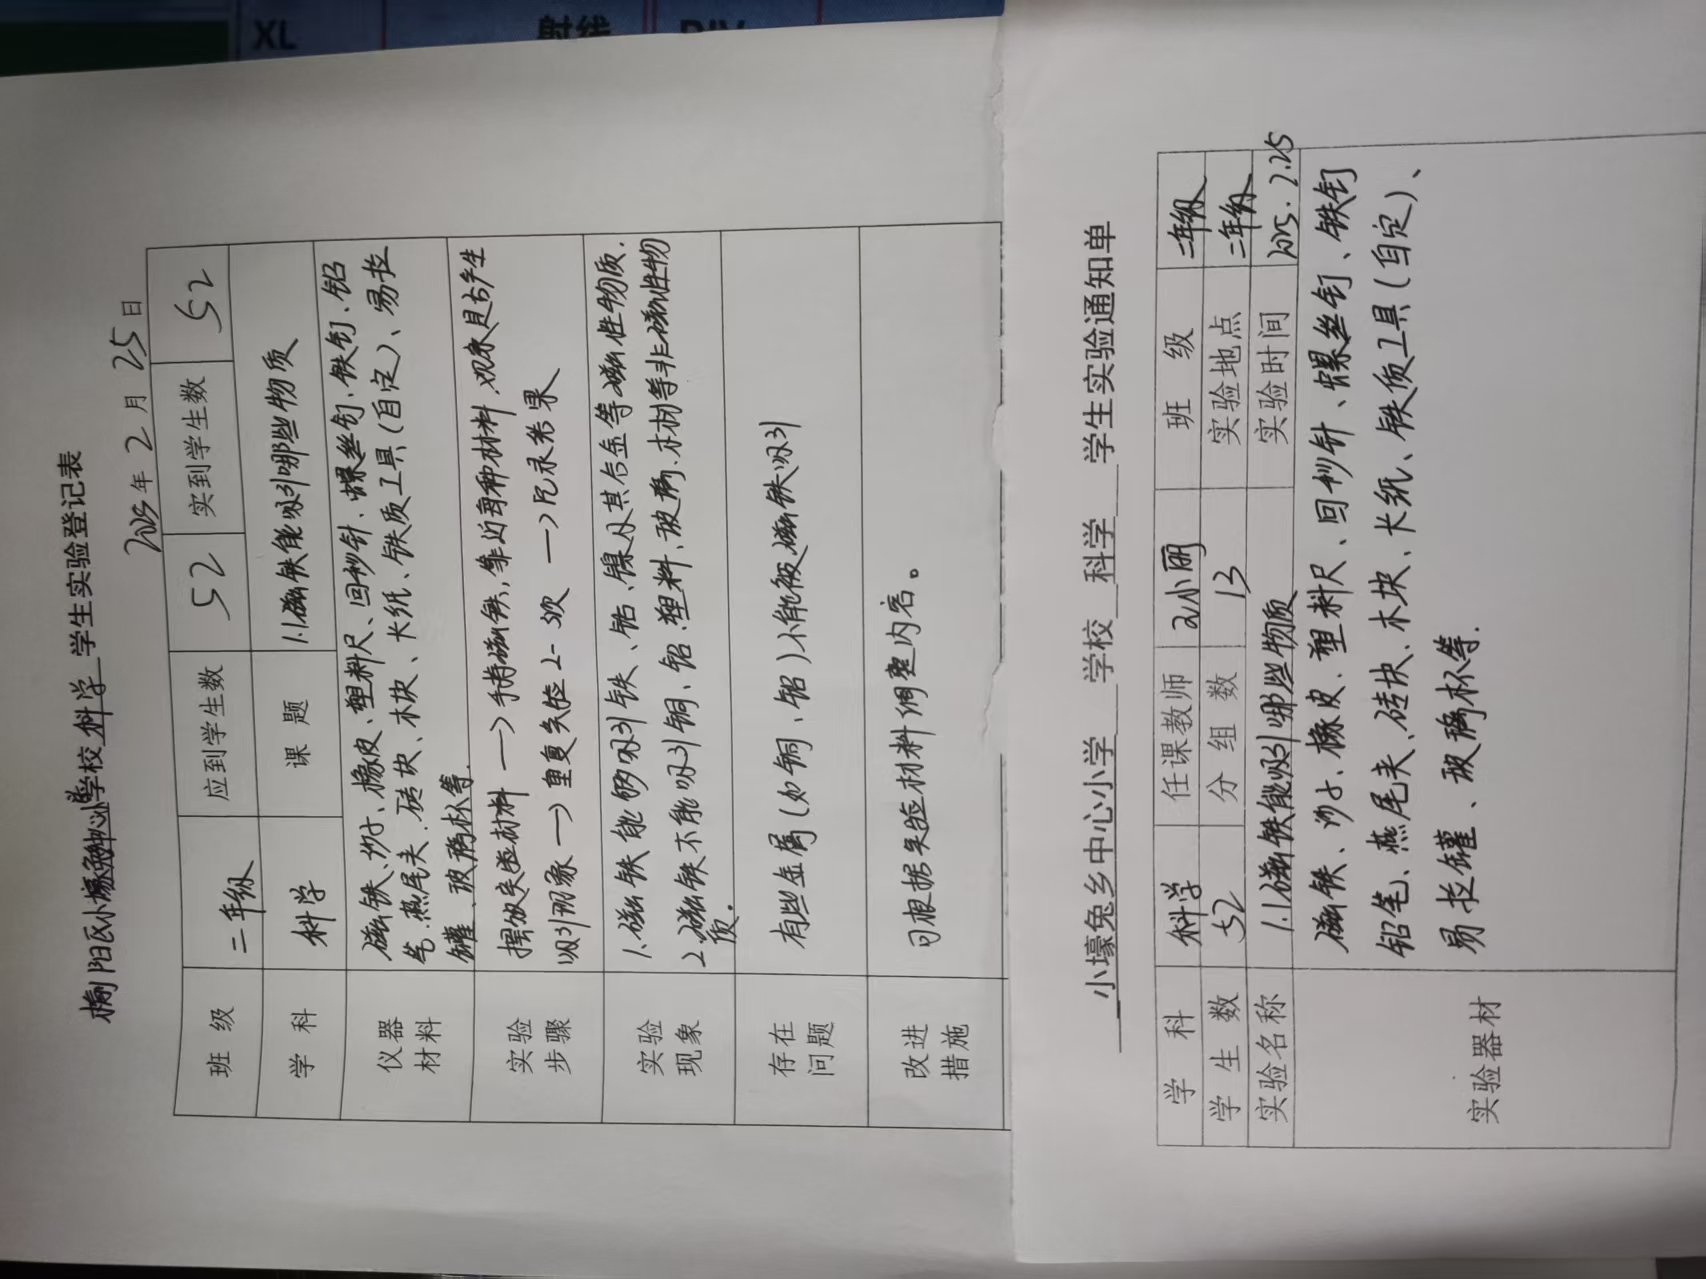 XL
射线
学校 科学 学生实验登记表
2025年 2 月 25 日
班 级 二年级 应到学生数 52 实到学生数 52
学 科 科学 课 题 1.1磁铁能吸引哪些物质
仪器材料 磁铁、沙子、橡皮、塑料尺、回形针、螺丝钉、铁钉、铅
笔、燕尾夹、砖块、木块、卡纸、铁质工具(自定)、易拉
罐、玻璃杯等.
实验步骤 摆放实验材料 —> 手持磁铁,靠近每种材料,观察是否产生
吸引现象 —> 重复实验2-3次 —> 记录结果
实验现象 1.磁铁能够吸引铁、钴、镍及其合金等磁性物质.
2.磁铁不能吸引铜、铝、塑料、玻璃、木材等非磁性物
质.
存在问题 有些金属(如铜、铝)不能被磁铁吸引
改进措施 可根据实验材料调整内容。
小壕兔乡中心小学 学校 科学 学生实验通知单
学 科 科学 任课教师 小丽 班 级 二年级
学 生 数 52 分 组 数 13 实验地点 二年级
实验名称 1.1磁铁能吸引哪些物质 实验时间 2025.2.25
实验器材 磁铁、沙子、橡皮、塑料尺、回形针、螺丝钉、铁钉
铅笔、燕尾夹、砖块、木块、卡纸、铁质工具(自定)、
易拉罐、玻璃杯等.